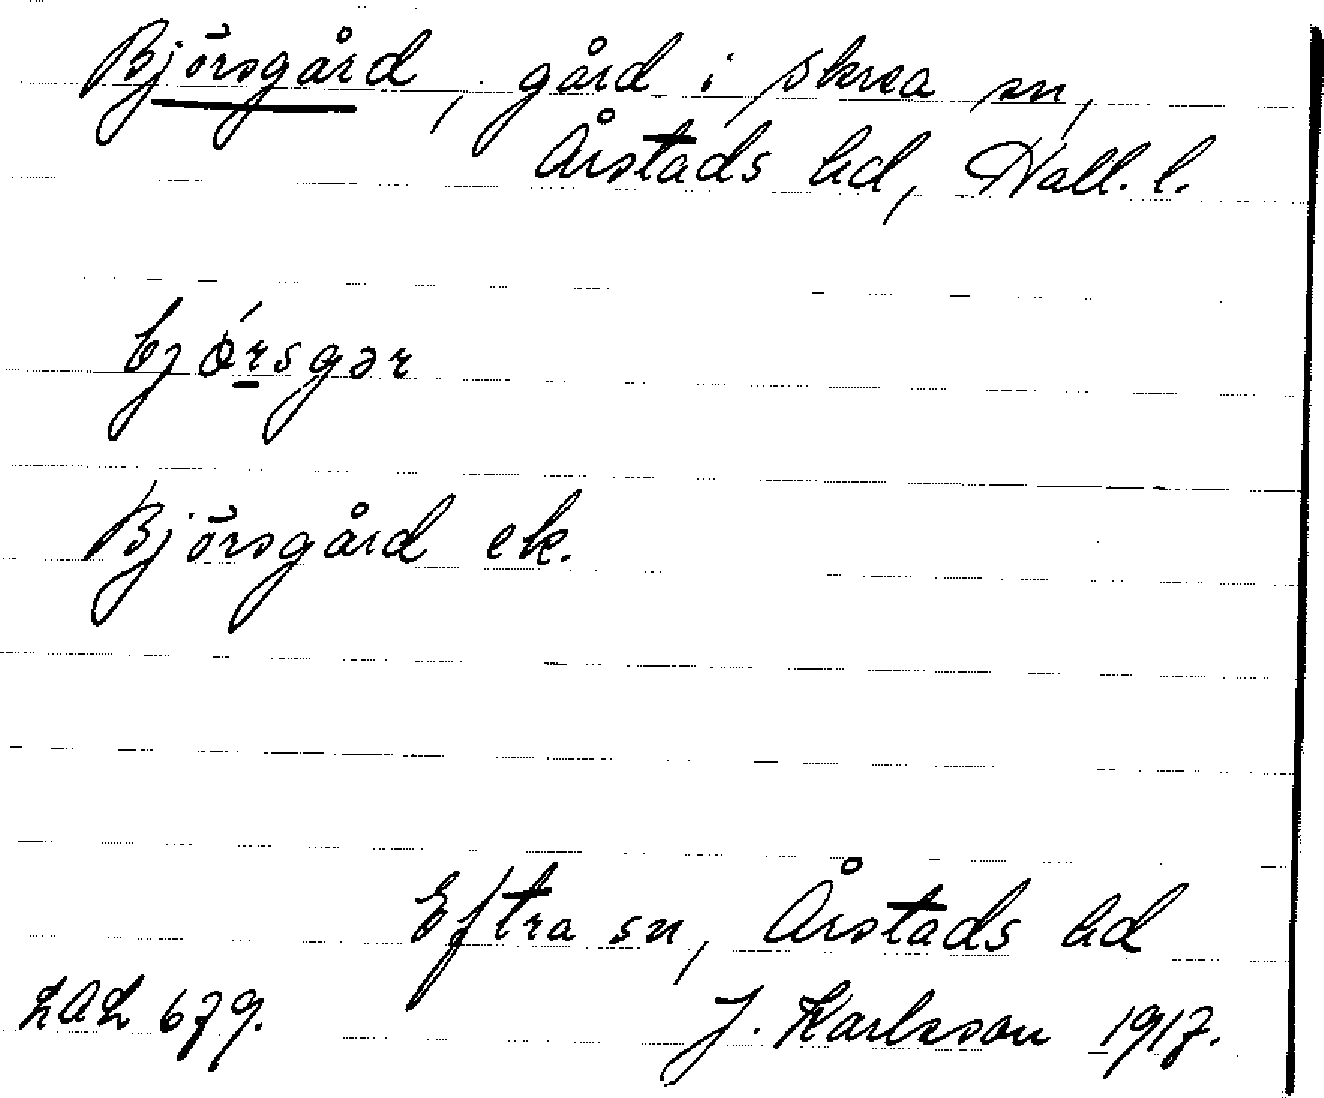 Björsgård, gård i Skrea sn,
Årstads hd, Hall. l.
bjǿrsgər
Björsgård ek.
Eftra sn, Årstads hd
LAL 679. J. Karlsson 1917.